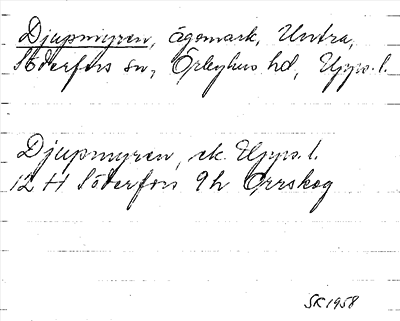 Djupmyren, ägomark, Untra,
Söderfors sn, Örbyhus hd, Upps. l.
Djupmyren, ek. Upps. l.
12 H Söderfors 9h Orrskog
SK 1958